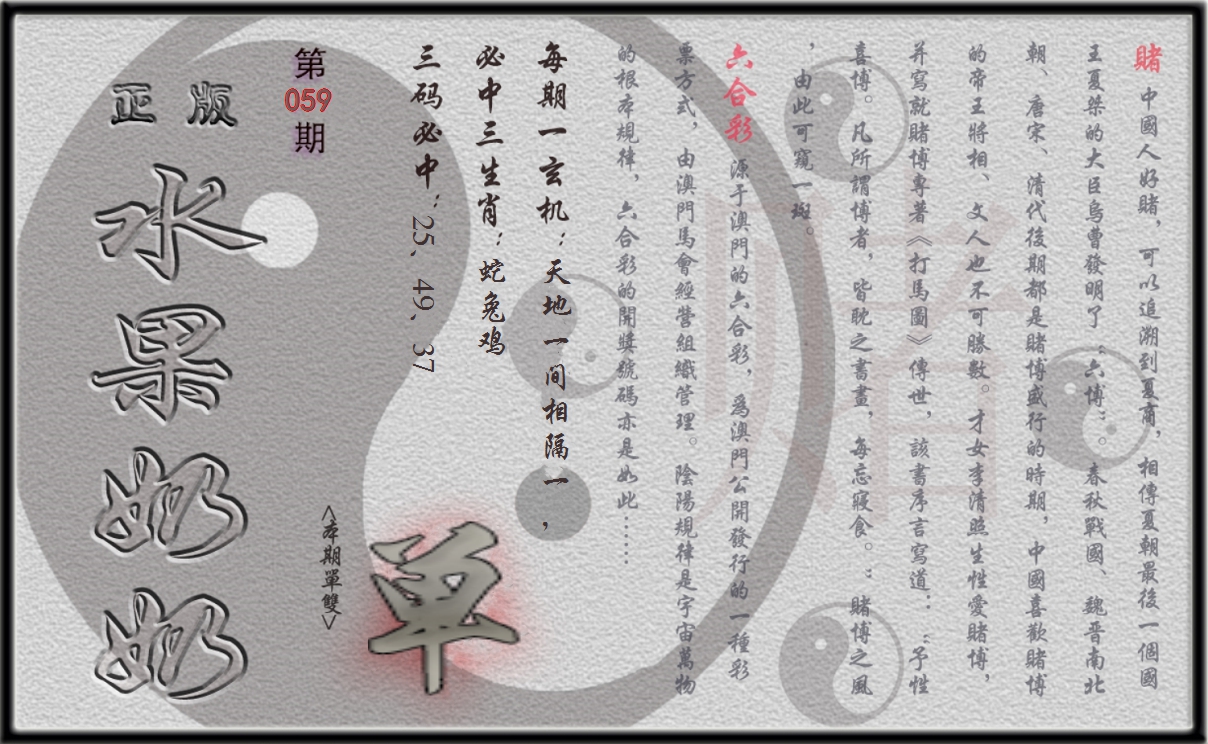 賭 中國人好賭，可以追溯到夏商，相傳夏朝最後一個國
王夏桀的大臣烏曹發明了“六博”。春秋戰國、魏晉南北
朝、唐宋、清代後期都是賭博盛行的時期，中國喜歡賭博
的帝王將相、文人也不可勝數。才女李清照生性愛賭博，
并寫就賭博專著《打馬圖》傳世，該書序言寫道：“予性
喜博。凡所謂博者，皆耽之書畫，每忘寢食。”賭博之風
，由此可窺一斑。
六合彩 源于澳門的六合彩，爲澳門公開發行的一種彩
票方式，由澳門馬會經營組織管理。陰陽規律是宇宙萬物
的根本規律，六合彩的開獎號碼亦是如此……
每期一玄机：天地一间相隔一，
必中三生肖：蛇兔鸡
三码必中：25、49、37
單
<本期單雙>
第
059
期
正版
水果奶奶
賭